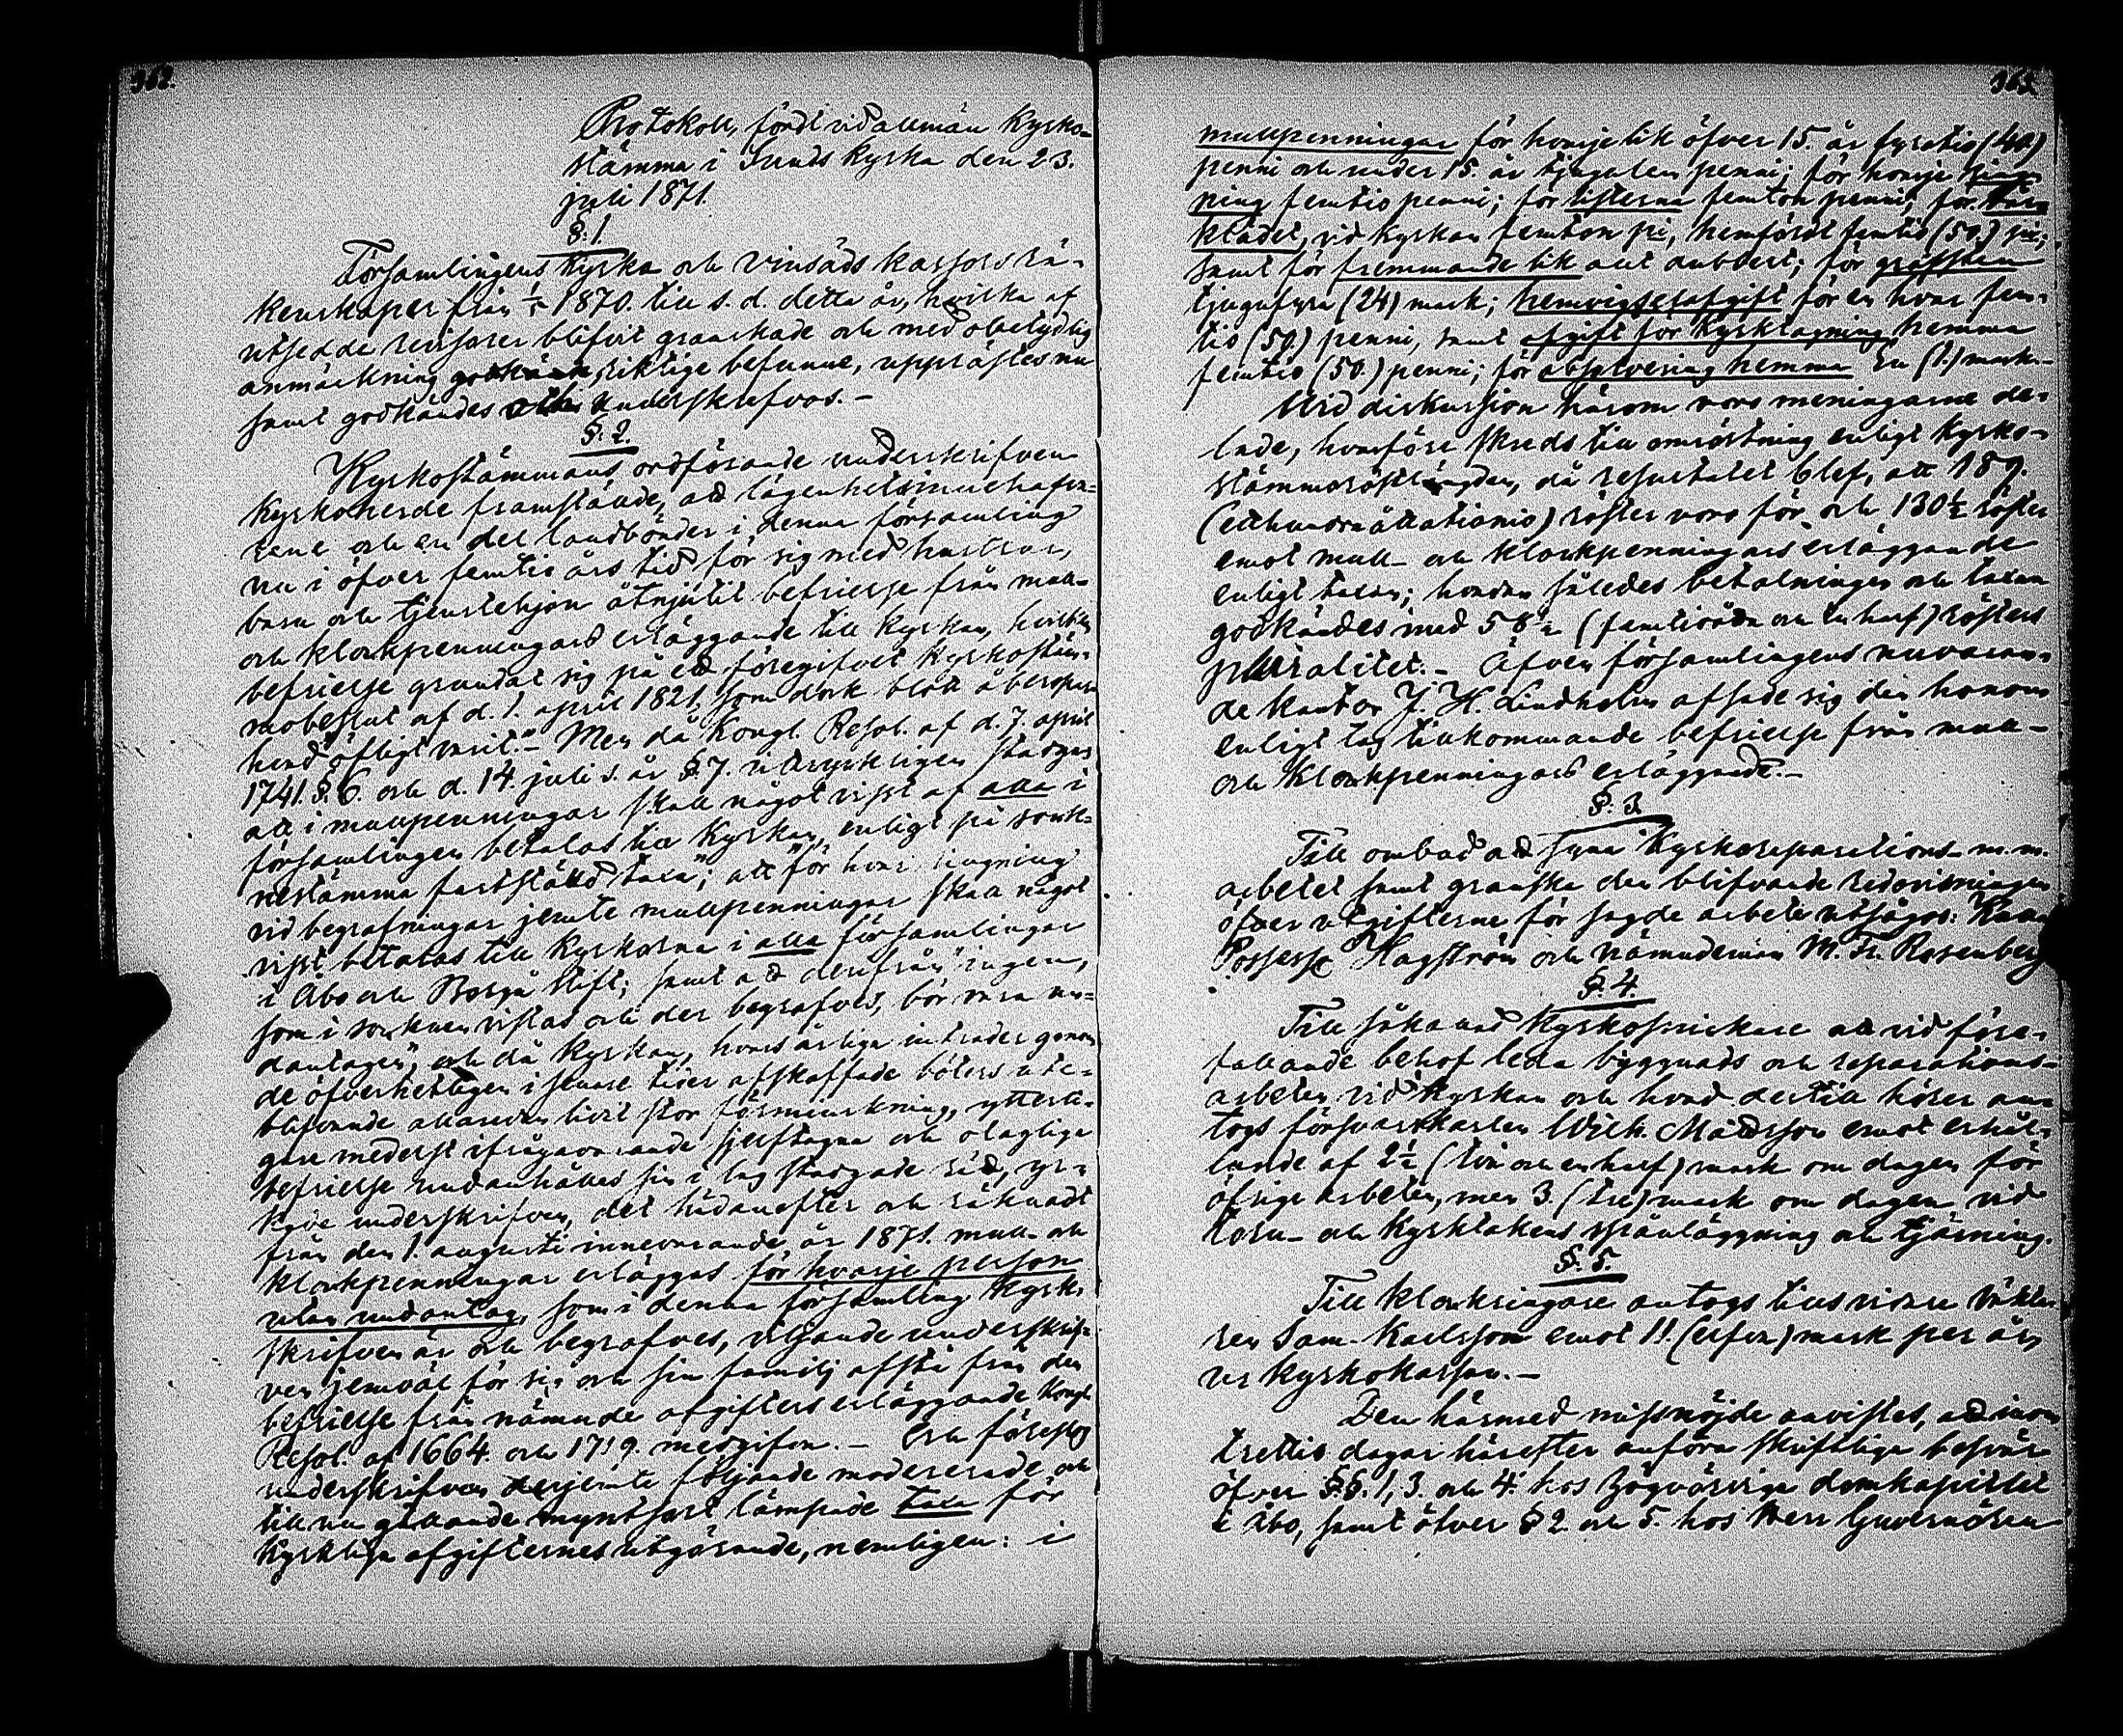 362.
Protokoll, fördt vid allmän kyrko-
stämma i Sunds kyrka den 23.
juli 1871.
§. 1.
Församlingens kyrka och vinsäds kassors rä-
kenskaper från 1870. till s. d. detta år, hvilka af
utsedde revisorer blifvit granskade och med obetydlig
anmärkning riktige befunne, upplästes nu
samt godkändes underskrefvos. –
§. 2.
Kyrkostämmans ordförande underskrifven
kyrkoherde framstälde, att lägenhetsinnehafva-
rene och en del landbönder i denna församling
nu i öfver femtio års tid för sig med hustrur,
barn och tjenstehjon åtnjutit befrielse från mull-
och klockpenningars erläggande till kyrkan, hvilken
befrielse grundat sig på ett föregifvet kyrkostäm-
mobeslut af d. 1. april 1821, som dock blott åberopar
hvad öfligt varit." – Men då Kongl. Resol. af d. 7. april
1741. §. 6. och d. 14. juli s. år §. 7. uttryckligen stadgar
att i mullpenningar skall något visst af alla i
församlingen betalas till kyrkan, enligt på sock-
nestämma fastställd taxa"; att "för hvar ringning
vid begrafningar jemte mullpenningar skall något
visst betalas till kyrkorna i alla församlingar
i Åbo och Borgå stift; samt att derifrån "ingen,
som i socknen vistas och der begrafves, bör vara un-
dantagen", och då kyrkan, hvars årliga inkomster genom
de öfverhetligen i senare tider afskaffade böters ute-
blifvande allaredan lidit stor förminskning, ytterli-
gare medelst ifrågavarande sjelftagna och olagliga
befrielse undanhålles sin i lag stadgade rätt, yr-
kade underskrifven, det hädanefter och räknadt
från den 1. augusti innevarande år 1871. mull- och
klockpenningar erläggas för hvarje person
utan undantag, som i denna församling kyrk-
skrifven är och begrafves, viljande underskrif-
ven jemväl för sig och sin familj afstå från den
befrielse från nämnde afgifters erläggande Kongl.
Resol. af 1664. och 1719. medgifva. – Och föreslog
underskrifven derjemte följande modererade och
till nu gällande myntfot lämpade taxa för
kyrkliga afgifternes utgörande, nemligen: i
363.
mullpenningar för hvarje lik öfver 15. år fyratio (40)
penni och under 15. år tjugofem penni; för hvarje ring-
ning femtio penni; för femton penni; för bår-
klädet, vid kyrkan femton pi, hemfördt femtio (50.) pi;
samt för fremmande lik allt dubbelt; för grafsten
tjugufyra (24) mark; hemvigselafgift för en hvar fem-
tio (50.) penni, samt afgift för kyrktagning hemma
femtio (50.) penni; för absolvering hemma En (1.) mark. –
Vid diskussion härom voro meningarne de-
lade, hvarföre skreds till omröstning enligt kyrko-
stämmoröstlängden, då resultatet blef, att 189.
(etthundraåttationio) röster voro för och 130½ röster
emot mull- och klockpenningars erläggande
enligt taxan; hvadan således betalningen och taxan
godkändes med 58½ (femtioåtta och en half) rösters
pluralitet. – Äfven församlingens nuvaran-
de kantor J. H. Lindholm afsade sig den honom
enligt lag tillkommande befrielse från mull-
och klockpenningars erläggande. –
§. 3.
Till ombud att syna kyrkoreparations- m. m.
arbetet samt granska den blifvande redovisningen
öfver utgifterne för sagde arbete utsågos:
Possess. Hagström och nämndeman M. Fr. Rosenberg
§. 4.
Till såkallad kyrkosnickare att vid före-
fallande behof leda byggnads och reparations-
arbeten vid kyrkan och hvad dertill hörer an-
togs försvarskarlen Wilh. Mattsson emot erhål-
lande af 2½ (två och en half) mark om dagen för
öfrige arbeten, men 3. (tre) mark om dagen vid
torn- och kyrktakens spånläggning och tjärning.
§. 5.
Till klockringare antogs tillsvidare
ren Sam. Karlsson emot 11. (elfva) mark per år
ur kyrkokassan. –
Den härmed missnöjde anvistes, att inom
trettio dagar härefter anföra skriftlige besvär
öfver §§. 1, 3. och 4. hos högvördige domkapitlet
i Åbo, samt öfver § 2. och 5. hos Herr Guvernören